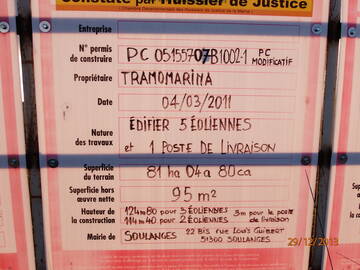 Constaté par Huissier de Justice
Entreprise
N° permis de construire PC 05155707B1002-1 PC MODIFICATIF
Propriétaire TRAMOMARINA
Date 04/03/2011
Nature des travaux ÉDIFIER 5 ÉOLIENNES
et 1 POSTE DE LIVRAISON
Superficie du terrain 81 ha 04a 80ca
Superficie hors œuvre nette 95 m²
Hauteur de la construction 124m80 pour 3 ÉOLIENNES 3m pour le poste
114m40 pour 2 ÉOLIENNES de livraison
Mairie de SOULANGES 22 Bis rue Louis Guibert
51300 SOULANGES
29/12/2013